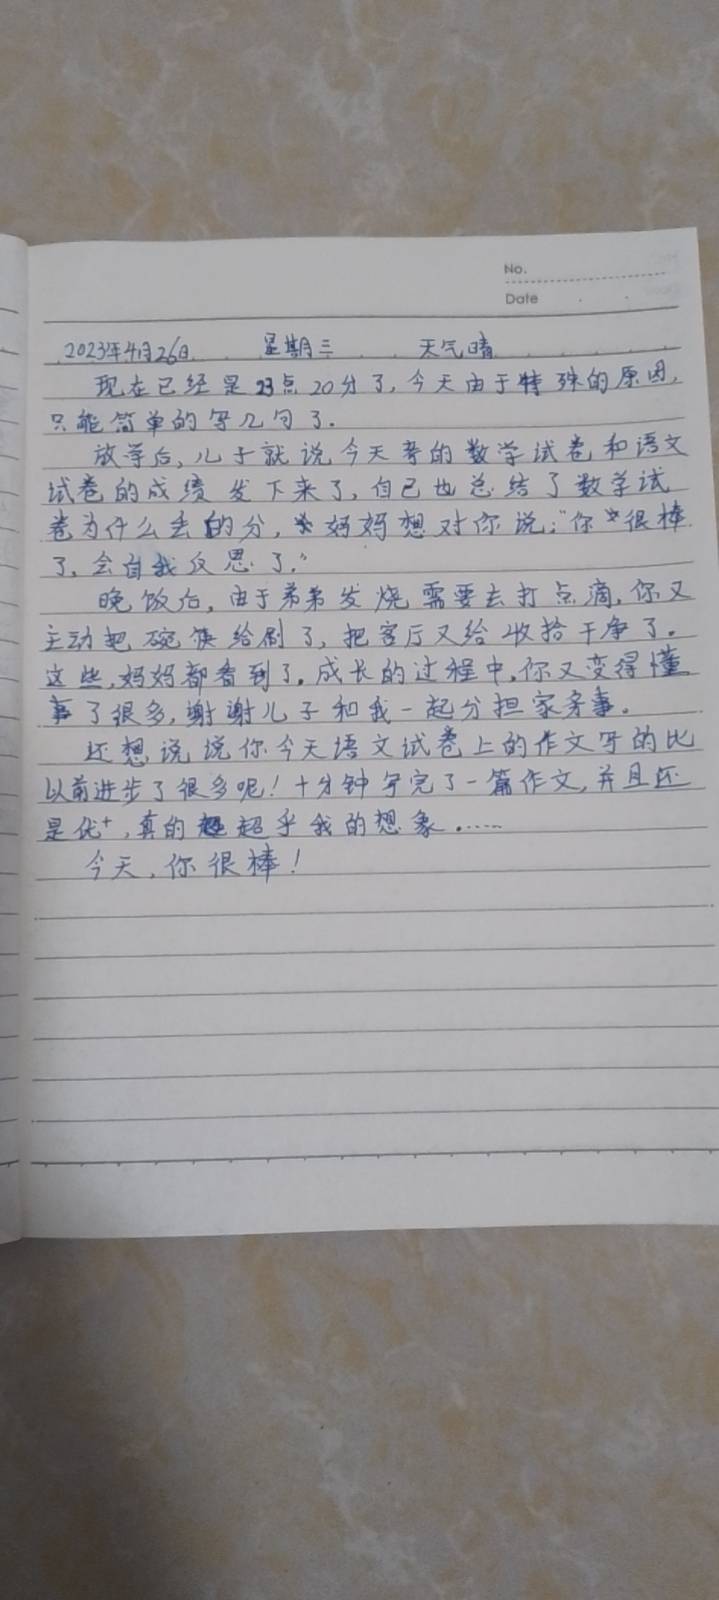 No.
Date
2023年4月26日 星期三 天气晴
现在已经是23点20分了,今天由于特殊的原因,
只能简单的写几句了.
放学后,儿子就说今天考的数学试卷和语文
试卷的成绩发下来了,自己也总结了数学试
卷为什么丢的分,妈妈想对你说:"你很棒
了,会自我反思了."
晚饭后,由于弟弟发烧需要去打点滴,你又
主动把碗筷给刷了,把客厅又给收拾干净了。
这些,妈妈都看到了。成长的过程中,你又变得懂
事了很多,谢谢儿子和我一起分担家务事。
还想说说你今天语文试卷上的作文写的比
以前进步了很多呢!十分钟写完了一篇作文,并且还
是优+,真的超乎我的想象。……
今天,你很棒!